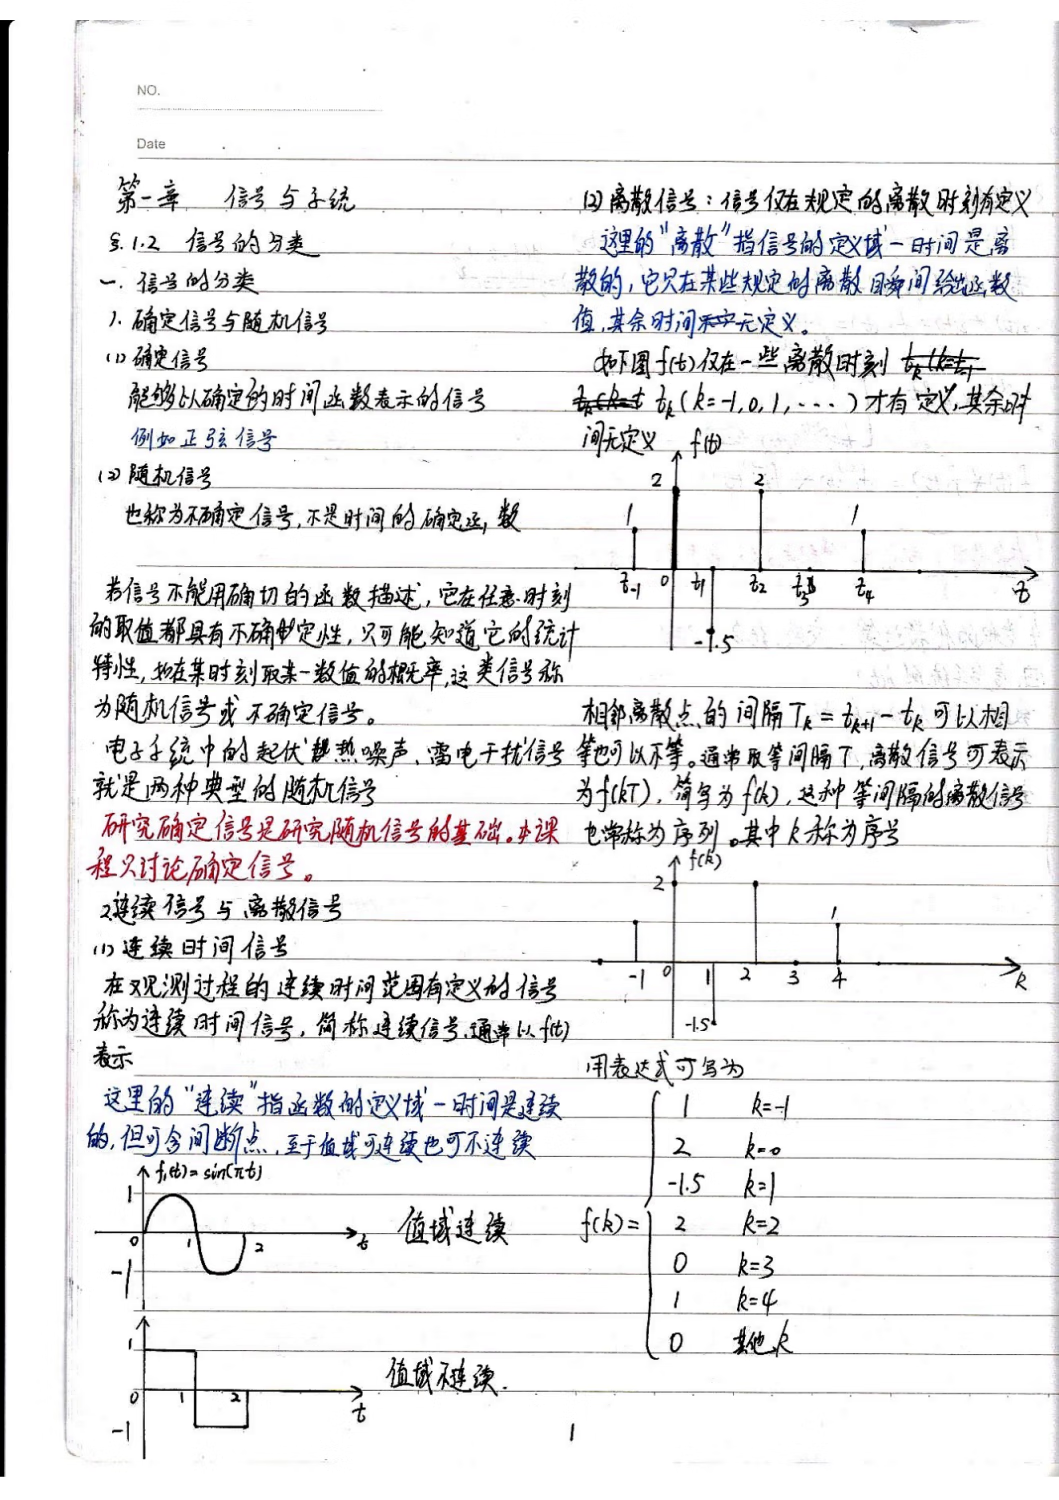 NO.
Date
第一章 信号与系统
§.1.2 信号的分类
一. 信号的分类
1. 确定信号与随机信号
(1) 确定信号
能够以确定的时间函数表示的信号
例如正弦信号
(2) 随机信号
也称为不确定信号,不是时间的确定函数
若信号不能用确切的函数描述,它在任意时刻
的取值都具有不确定性,只可能知道它的统计
特性,如在某时刻取某一数值的概率,这类信号称
为随机信号或不确定信号。
电子系统中的起伏热噪声、雷电干扰信号
就是两种典型的随机信号
研究确定信号是研究随机信号的基础。本课
程只讨论确定信号。
2.连续信号与离散信号
(1) 连续时间信号
在观测过程的连续时间范围有定义的信号
称为连续时间信号,简称连续信号.通常以f(t)
表示
这里的"连续"指函数的定义域-时间是连续
的,但可含间断点,至于值域可连续也可不连续
f₁(t)=sin(πt)
1
0 1 2 t
-1
值域连续
1
0 1 2 t
-1
值域不连续.
(2) 离散信号:信号仅在规定的离散时刻有定义
这里的"离散"指信号的定义域-时间是离
散的,它只在某些规定的离散瞬间给出函数
值,其余时间无定义。
如下图f(t)仅在一些离散时刻
tₖ(k=-1,0,1,····)才有定义,其余时
间无定义 f(t)
2 2
1 1
t₋₁ 0 t₁ t₂ t₃ t₄ t
-1.5
相邻离散点的间隔Tₖ=tₖ₊₁-tₖ可以相
等也可以不等。通常取等间隔T,离散信号可表示
为f(kT),简写为f(k),这种等间隔的离散信号
也常称为序列。其中k称为序号
f(k)
2
1
-1 0 1 2 3 4 k
-1.5
用表达式可写为
1 k=-1
2 k=0
-1.5 k=1
f(k)= 2 k=2
0 k=3
1 k=4
0 其他k
1